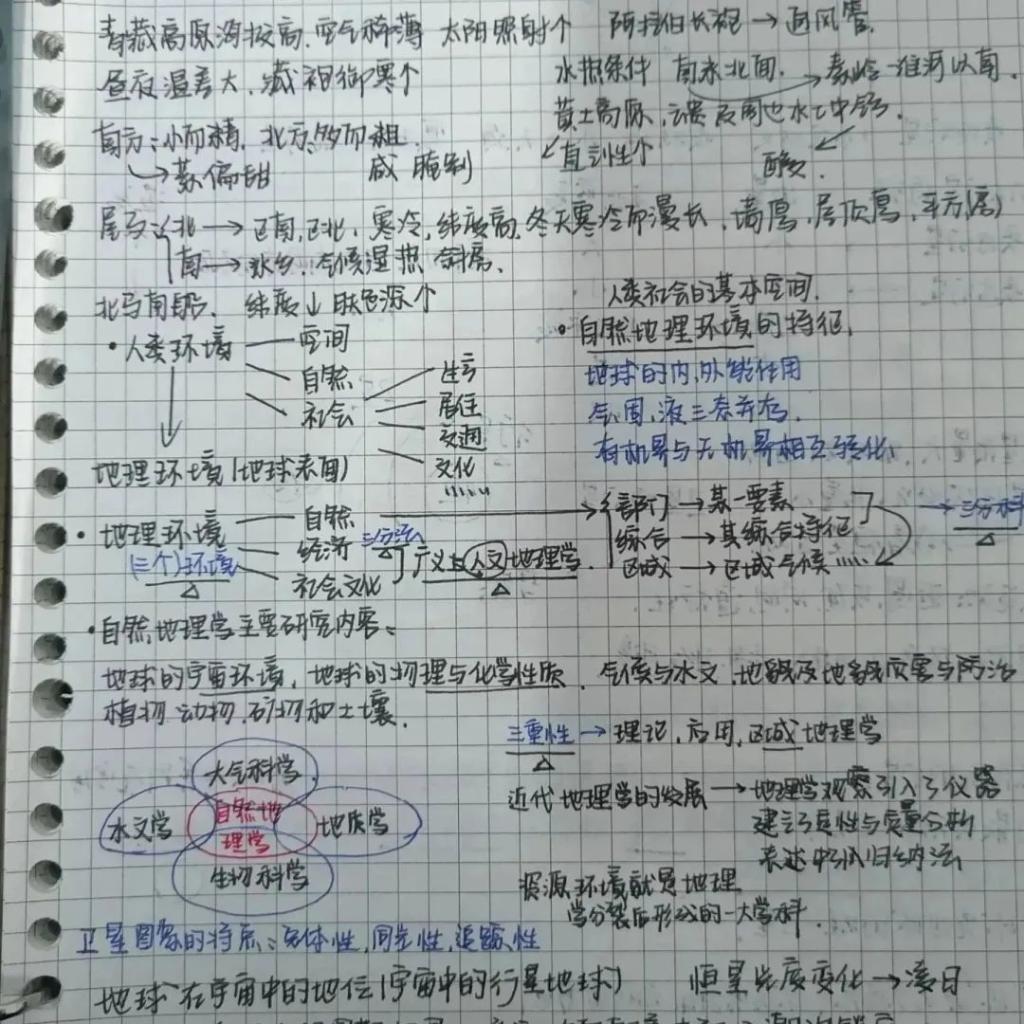 青藏高原海拔高、空气稀薄 太阳照射个 阿拉伯长袍→通风管.
昼夜温差大、减袍御寒个 水热条件 南米北面. →秦岭-淮河以南.
黄土高原, 及周边水土中钙.
南方:小而精, 北方,多而粗
→菜偏甜 咸 腌制 直 性个 酸.
房 北→ 南, 北, 寒冷, 纬度高, 冬天寒冷而漫长, 墙厚, 屋顶厚, 平方(房)
南→水乡, 气候湿热 斜房.
北 南 纬度↓ 肤色深个
人类社会的基本空间.
·人类环境 — 空间
自然
社会 — 生云
居住
交通
文化
·自然地理环境的特征.
地球的内,外能作用
气,固,液三态并存.
有机界与无机界相互转化.
地理环境(地球表面)
·地理环境 — 自然 → 部门→某一要素 →三分科
(三个)环境 经济 三分法 广义 人文地理学. 综合→其综合特征
社会文化 区域→区域气候……
·自然地理学主要研究内容:
地球的宇宙环境, 地球的物理与化学性质, 气候与水文, 地貌及地貌灾害与防治
植物 动物, 矿物和土壤.
三重性→理论, 应用, 区域地理学
大气科学
水文学 自然地理学 地质学
生物科学
近代地理学的发展→地理学观察引入了仪器
建立了定性与定量分析
表达中引入归纳法
资源环境就是地理
学分裂后形成的一大学科.
卫星图像的特点: 性, 同步性, 追踪性
地球在宇宙中的地位(宇宙中的行星地球) 恒星 度变化→凌日